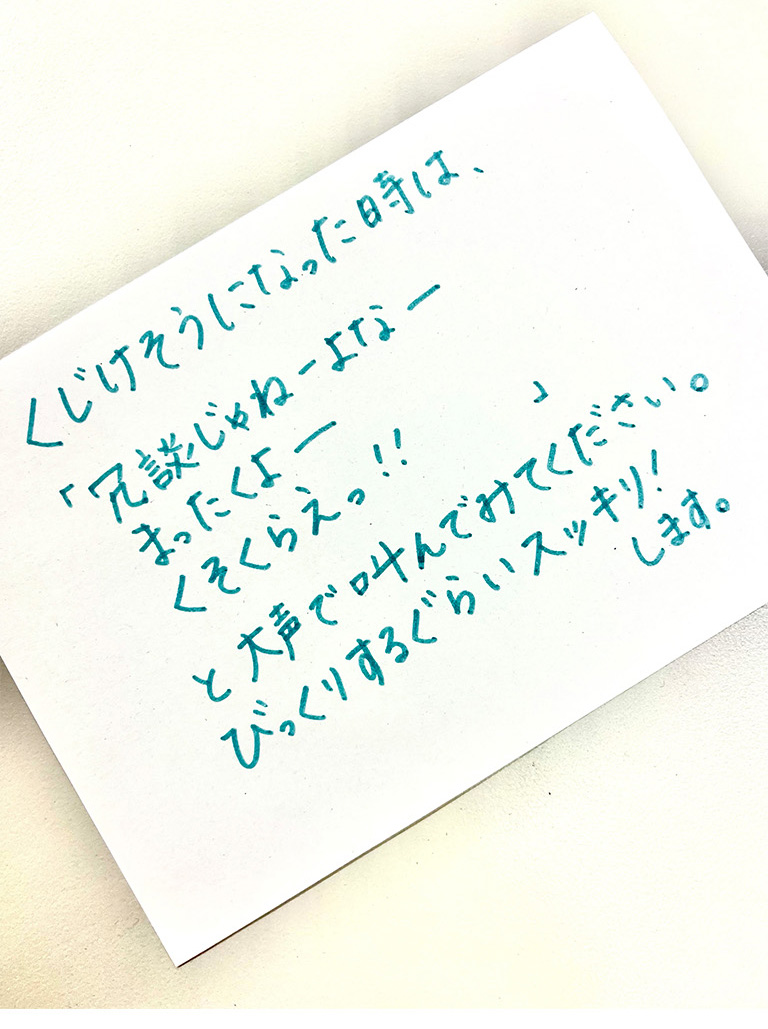 くじけそうになった時は、
「冗談じゃねーよなー
まったくよー
くそくらえっ!!」
と大声で叫んでみてください。
びっくりするぐらいスッキリ!
します。